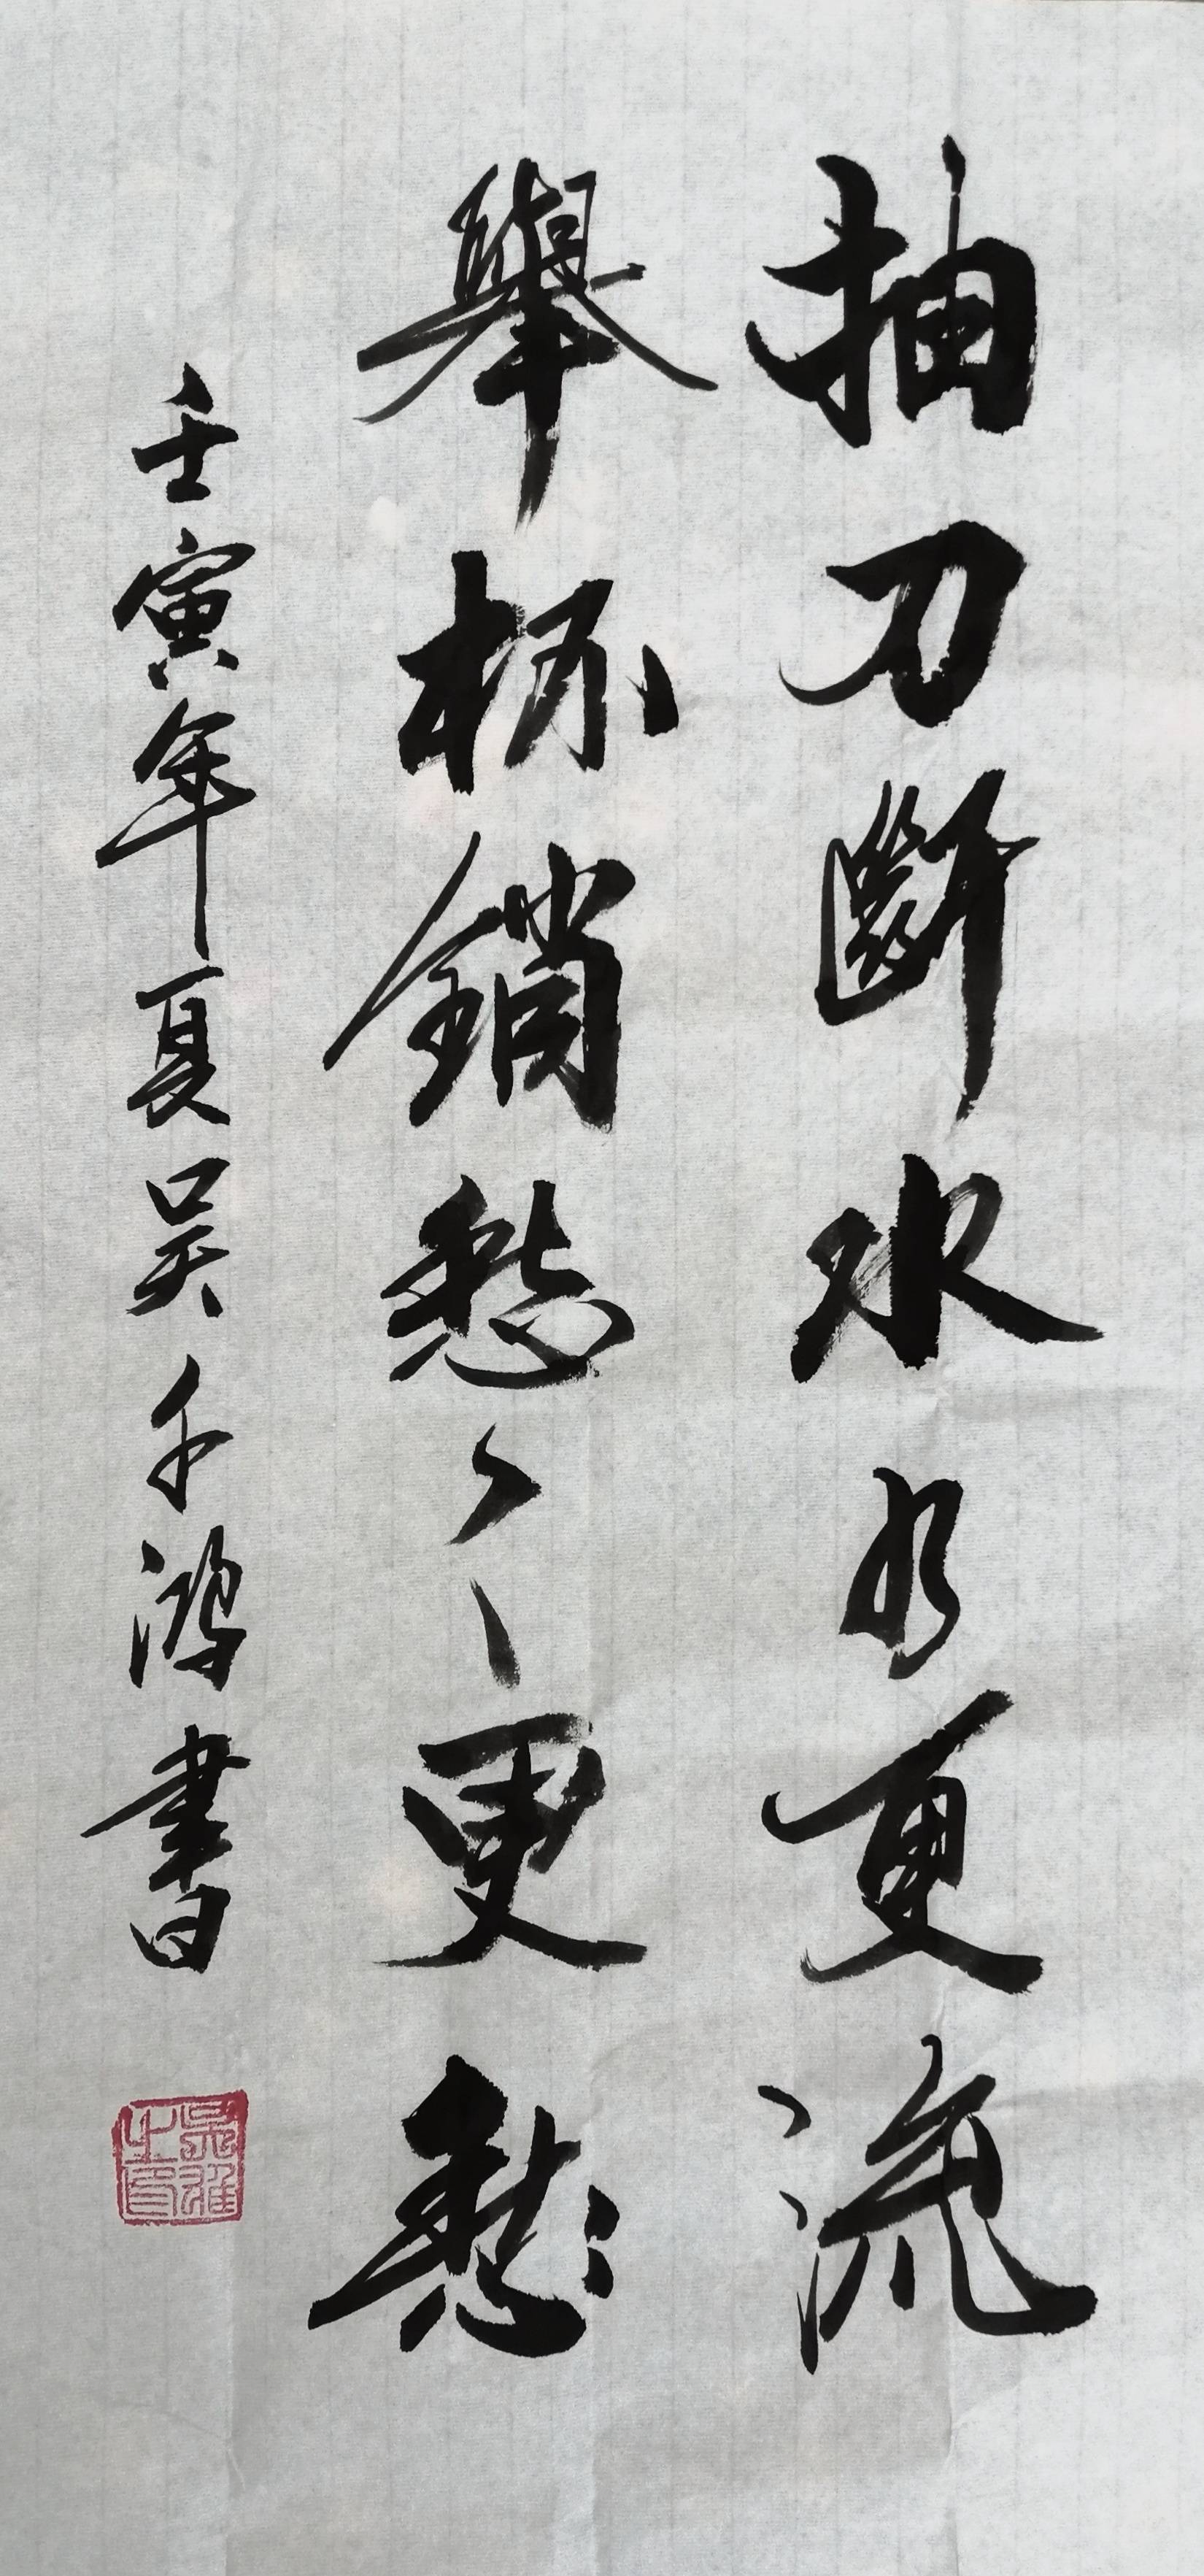 抽刀斷水水更流
舉杯銷愁々更愁
壬寅年夏吴千鴻書